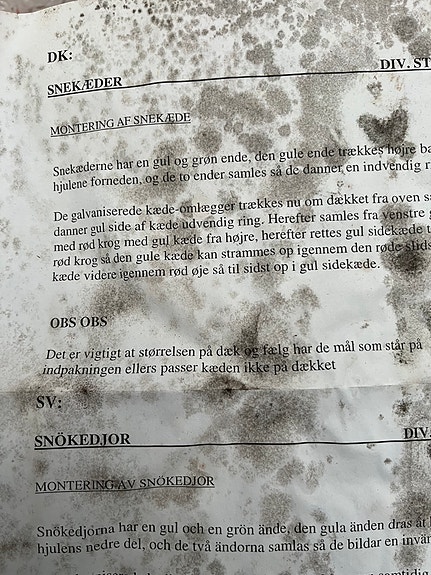 DK:
SNEKÆDER DIV. ST
MONTERING AF SNEKÆDE
Snekæderne har en gul og grøn ende, den gule ende trækkes højre ba
hjulene forneden, og de to ender samles så de danner en indvendig r
De galvaniserede kæde-omlægger trækkes nu om dækket fra oven s
danner gul side af kæde udvendig ring. Herefter samles fra venstre
med rød krog med gul kæde fra højre, herefter rettes gul sidekæde t
rød krog så den gule kæde kan strammes op igennem den røde slids
kæde videre igennem rød øje så til sidst op i gul sidekæde.
OBS OBS
Det er vigtigt at størrelsen på dæk og fælg har de mål som står på
indpakningen ellers passer kæden ikke på dækket
SV:
SNÖKEDJOR DIV.
MONTERING AV SNÖKEDJOR
Snökedjorna har en gul och en grön ände, den gula änden dras åt
hjulens nedre del, och de två ändorna samlas så de bildar en invän
samtidig